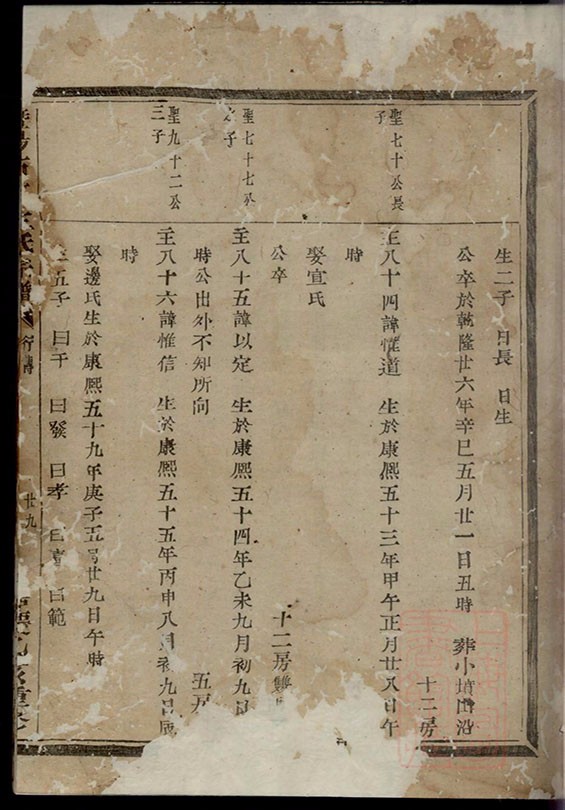 生二子 曰長 曰生
公卒於乾隆廿六年辛巳五月廿一日丑時 葬小墳山沿
十二房
聖七十公長
子
圭八十四諱惟道 生於康熙五十三年甲午正月廿八日午
時
娶宣氏
公卒 十二房
聖七十七公
子
圭八十五諱以定 生於康熙五十四年乙未九月初九日
時公出外不知所向 五房
聖九十二公
三子
圭八十六諱惟信 生於康熙五十五年丙申八月初九日
時
娶邊氏生於康熙五十九年庚子五月廿九日午時
五子 曰干 曰發 曰孝 曰 曰範
氏宗譜 行傳 廿九